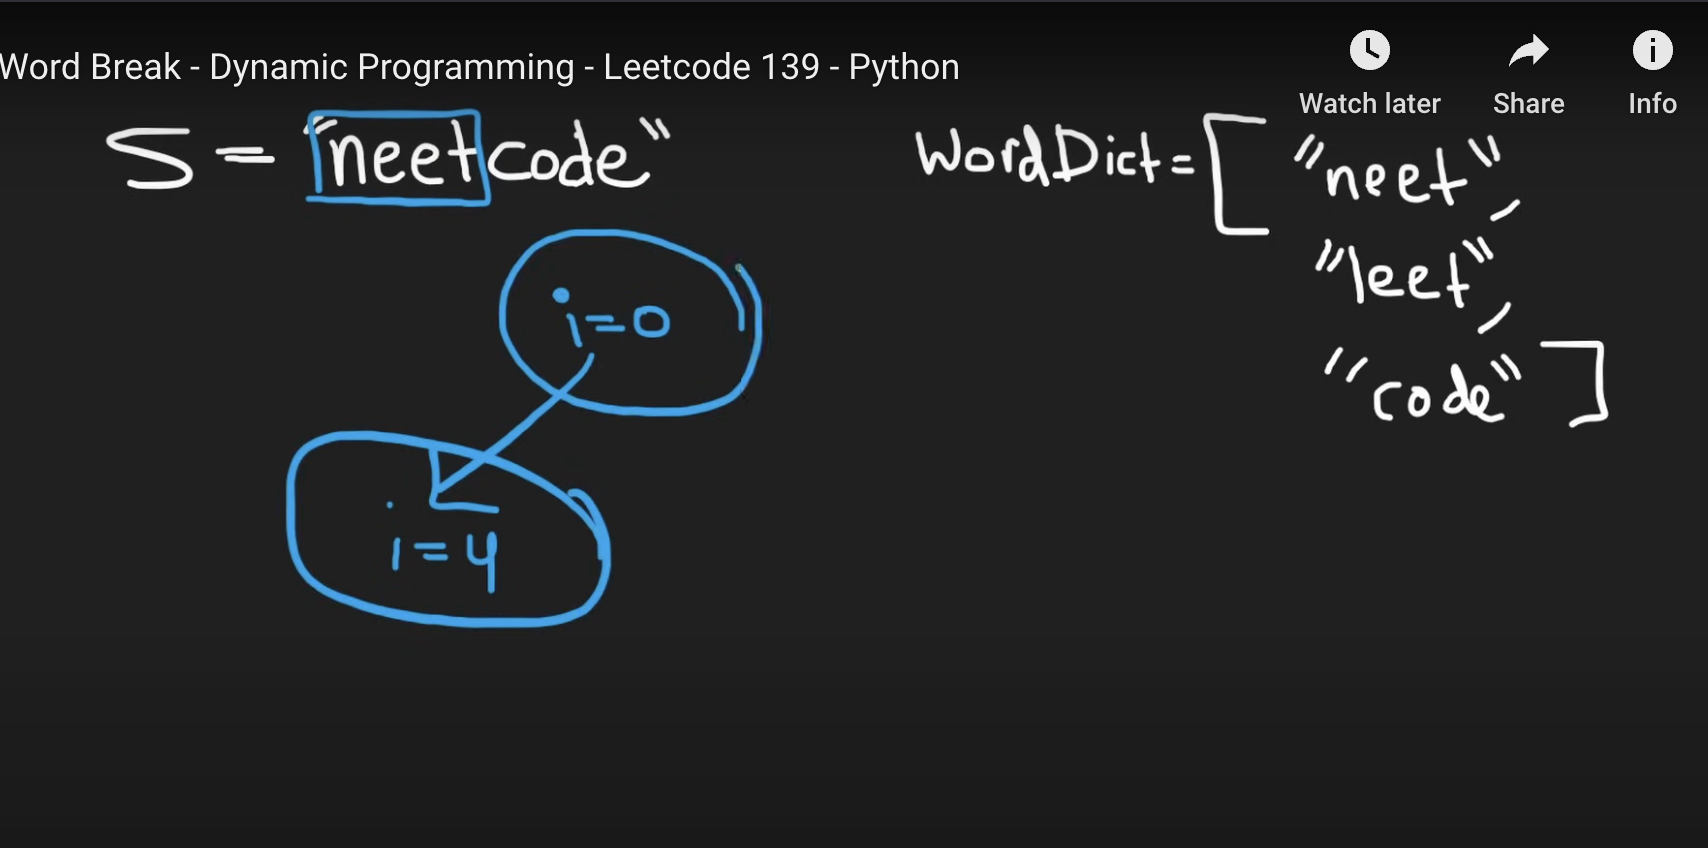 Word Break - Dynamic Programming - Leetcode 139 - Python
Watch later
Share
Info
S = "neetcode"
WordDict = [ "neet",
"leet",
"code" ]
i=0
i=4